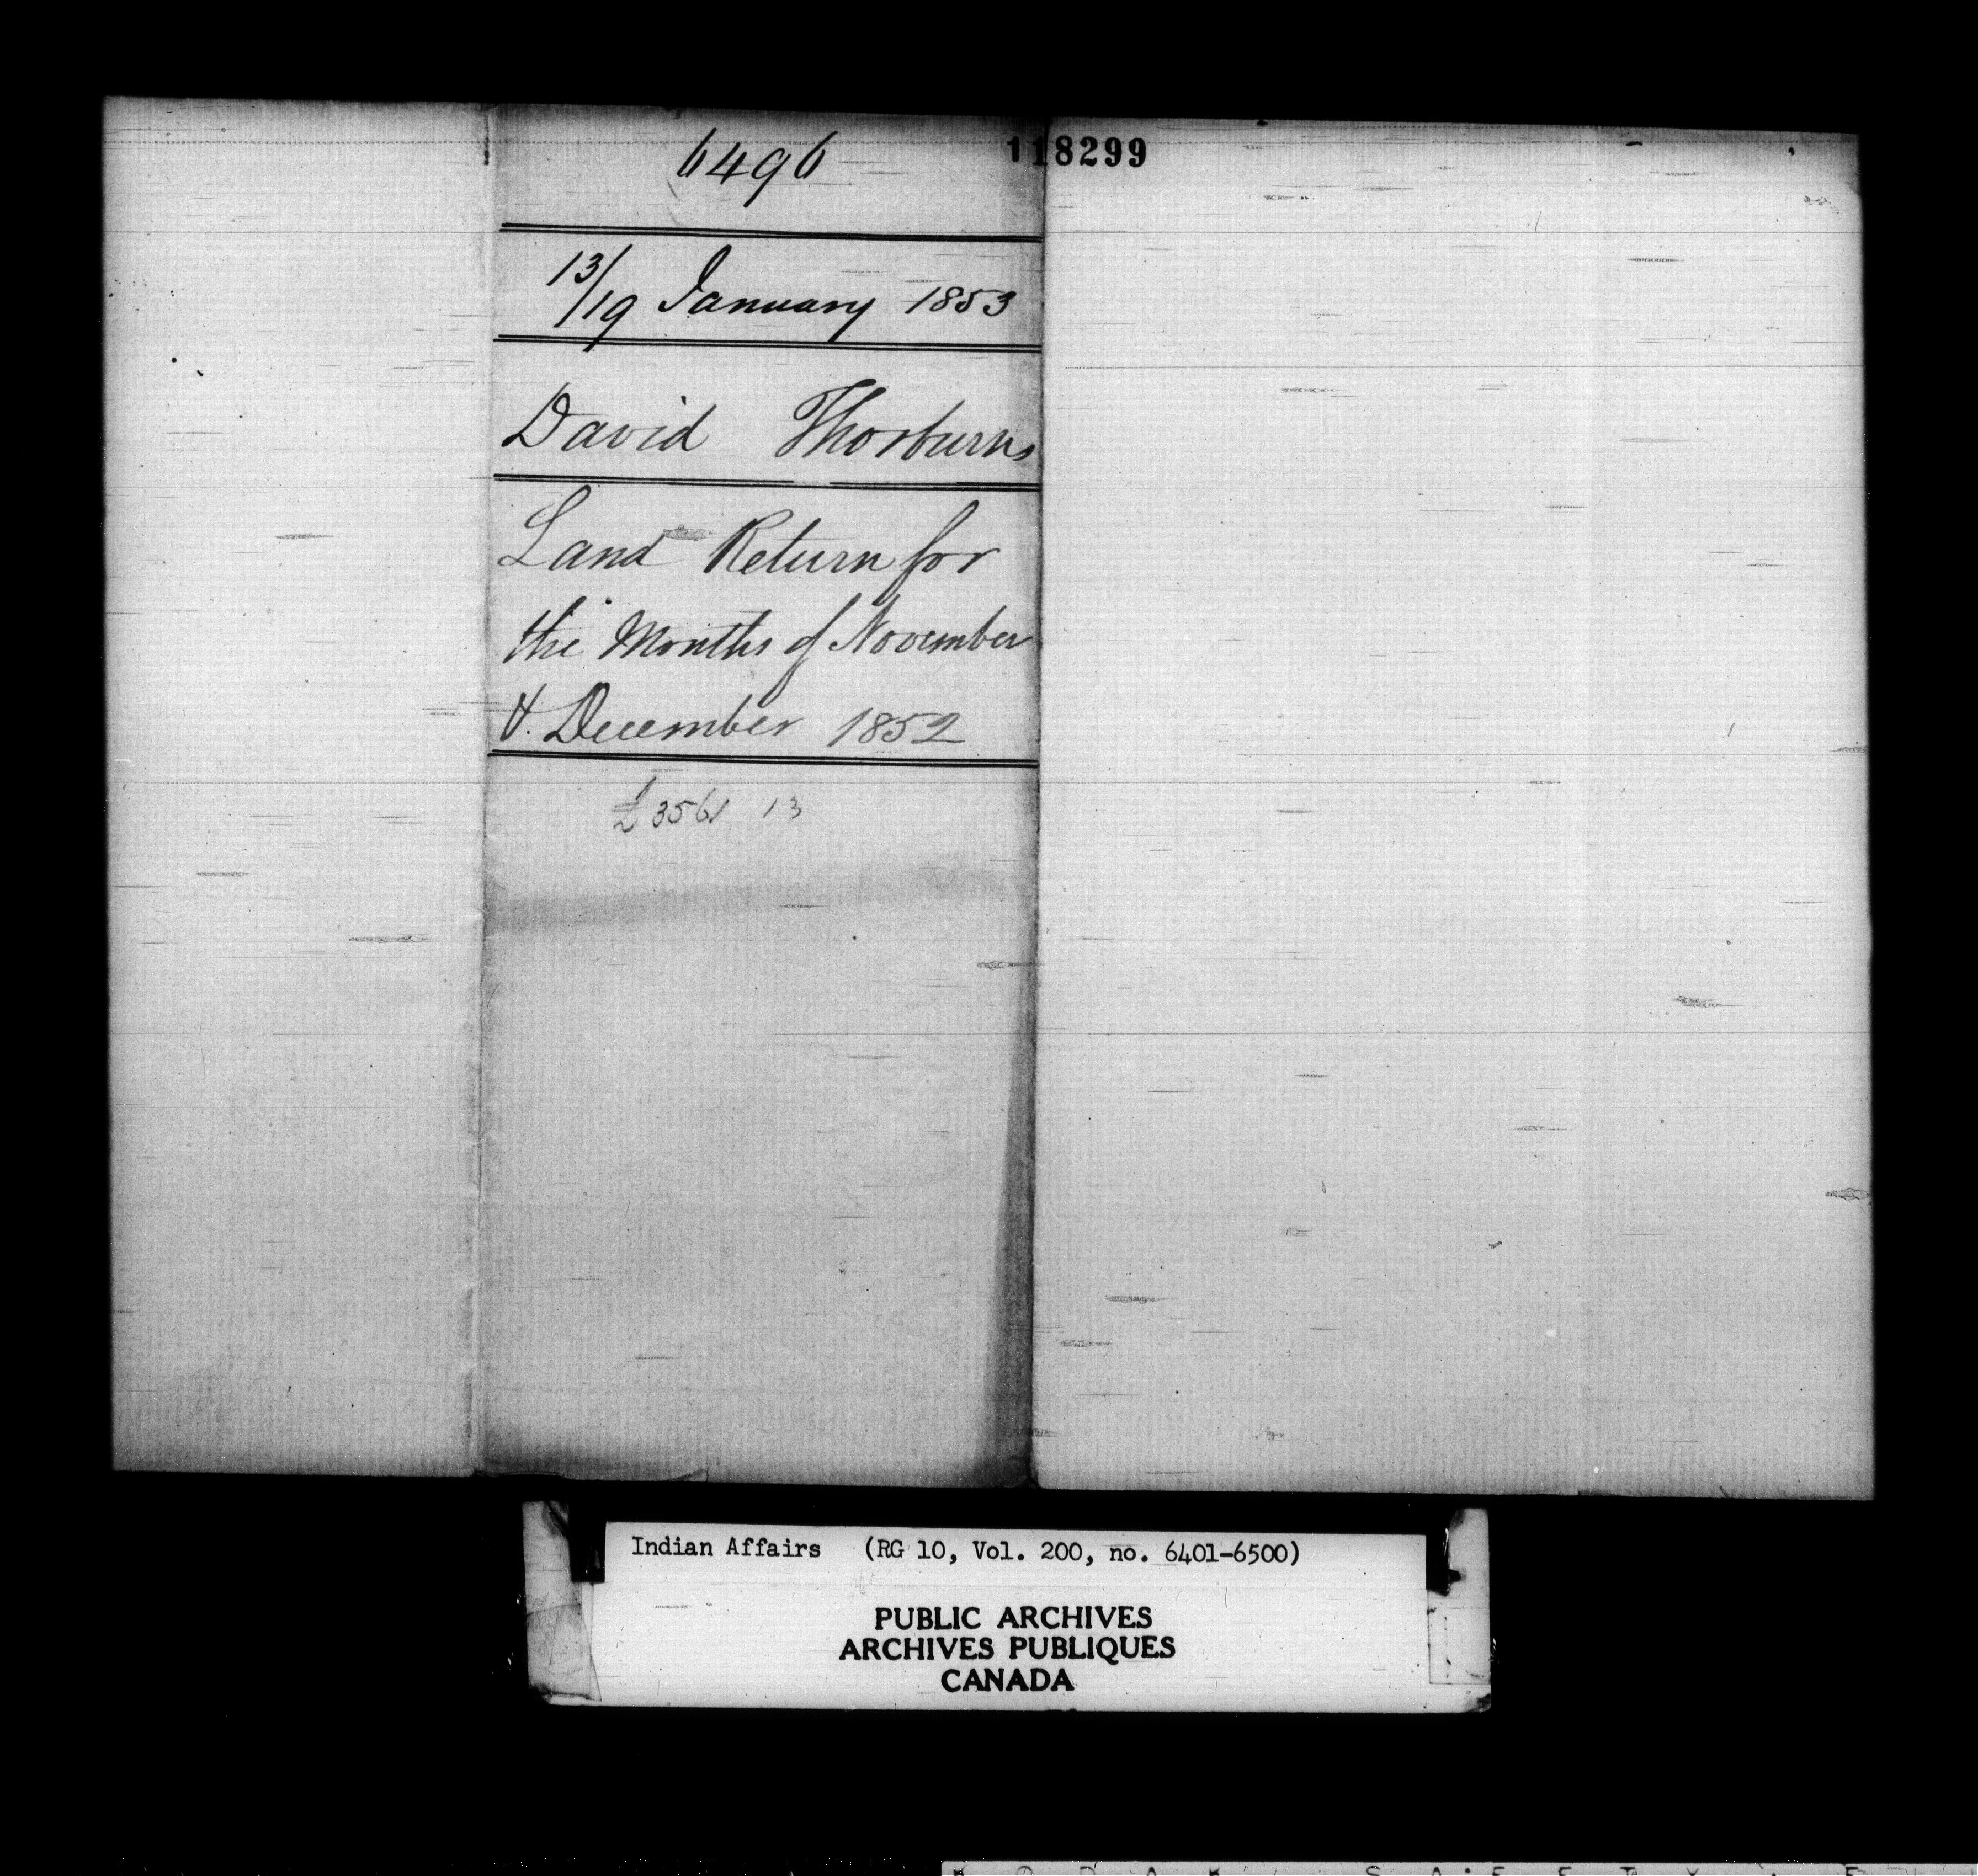 6496
118299
13/19 January 1853
David Thorburn
Land Return for
the Months of November
& December 1852
£3561 13
Indian Affairs (RG 10, Vol. 200, no. 6401-6500)
PUBLIC ARCHIVES
ARCHIVES PUBLIQUES
CANADA